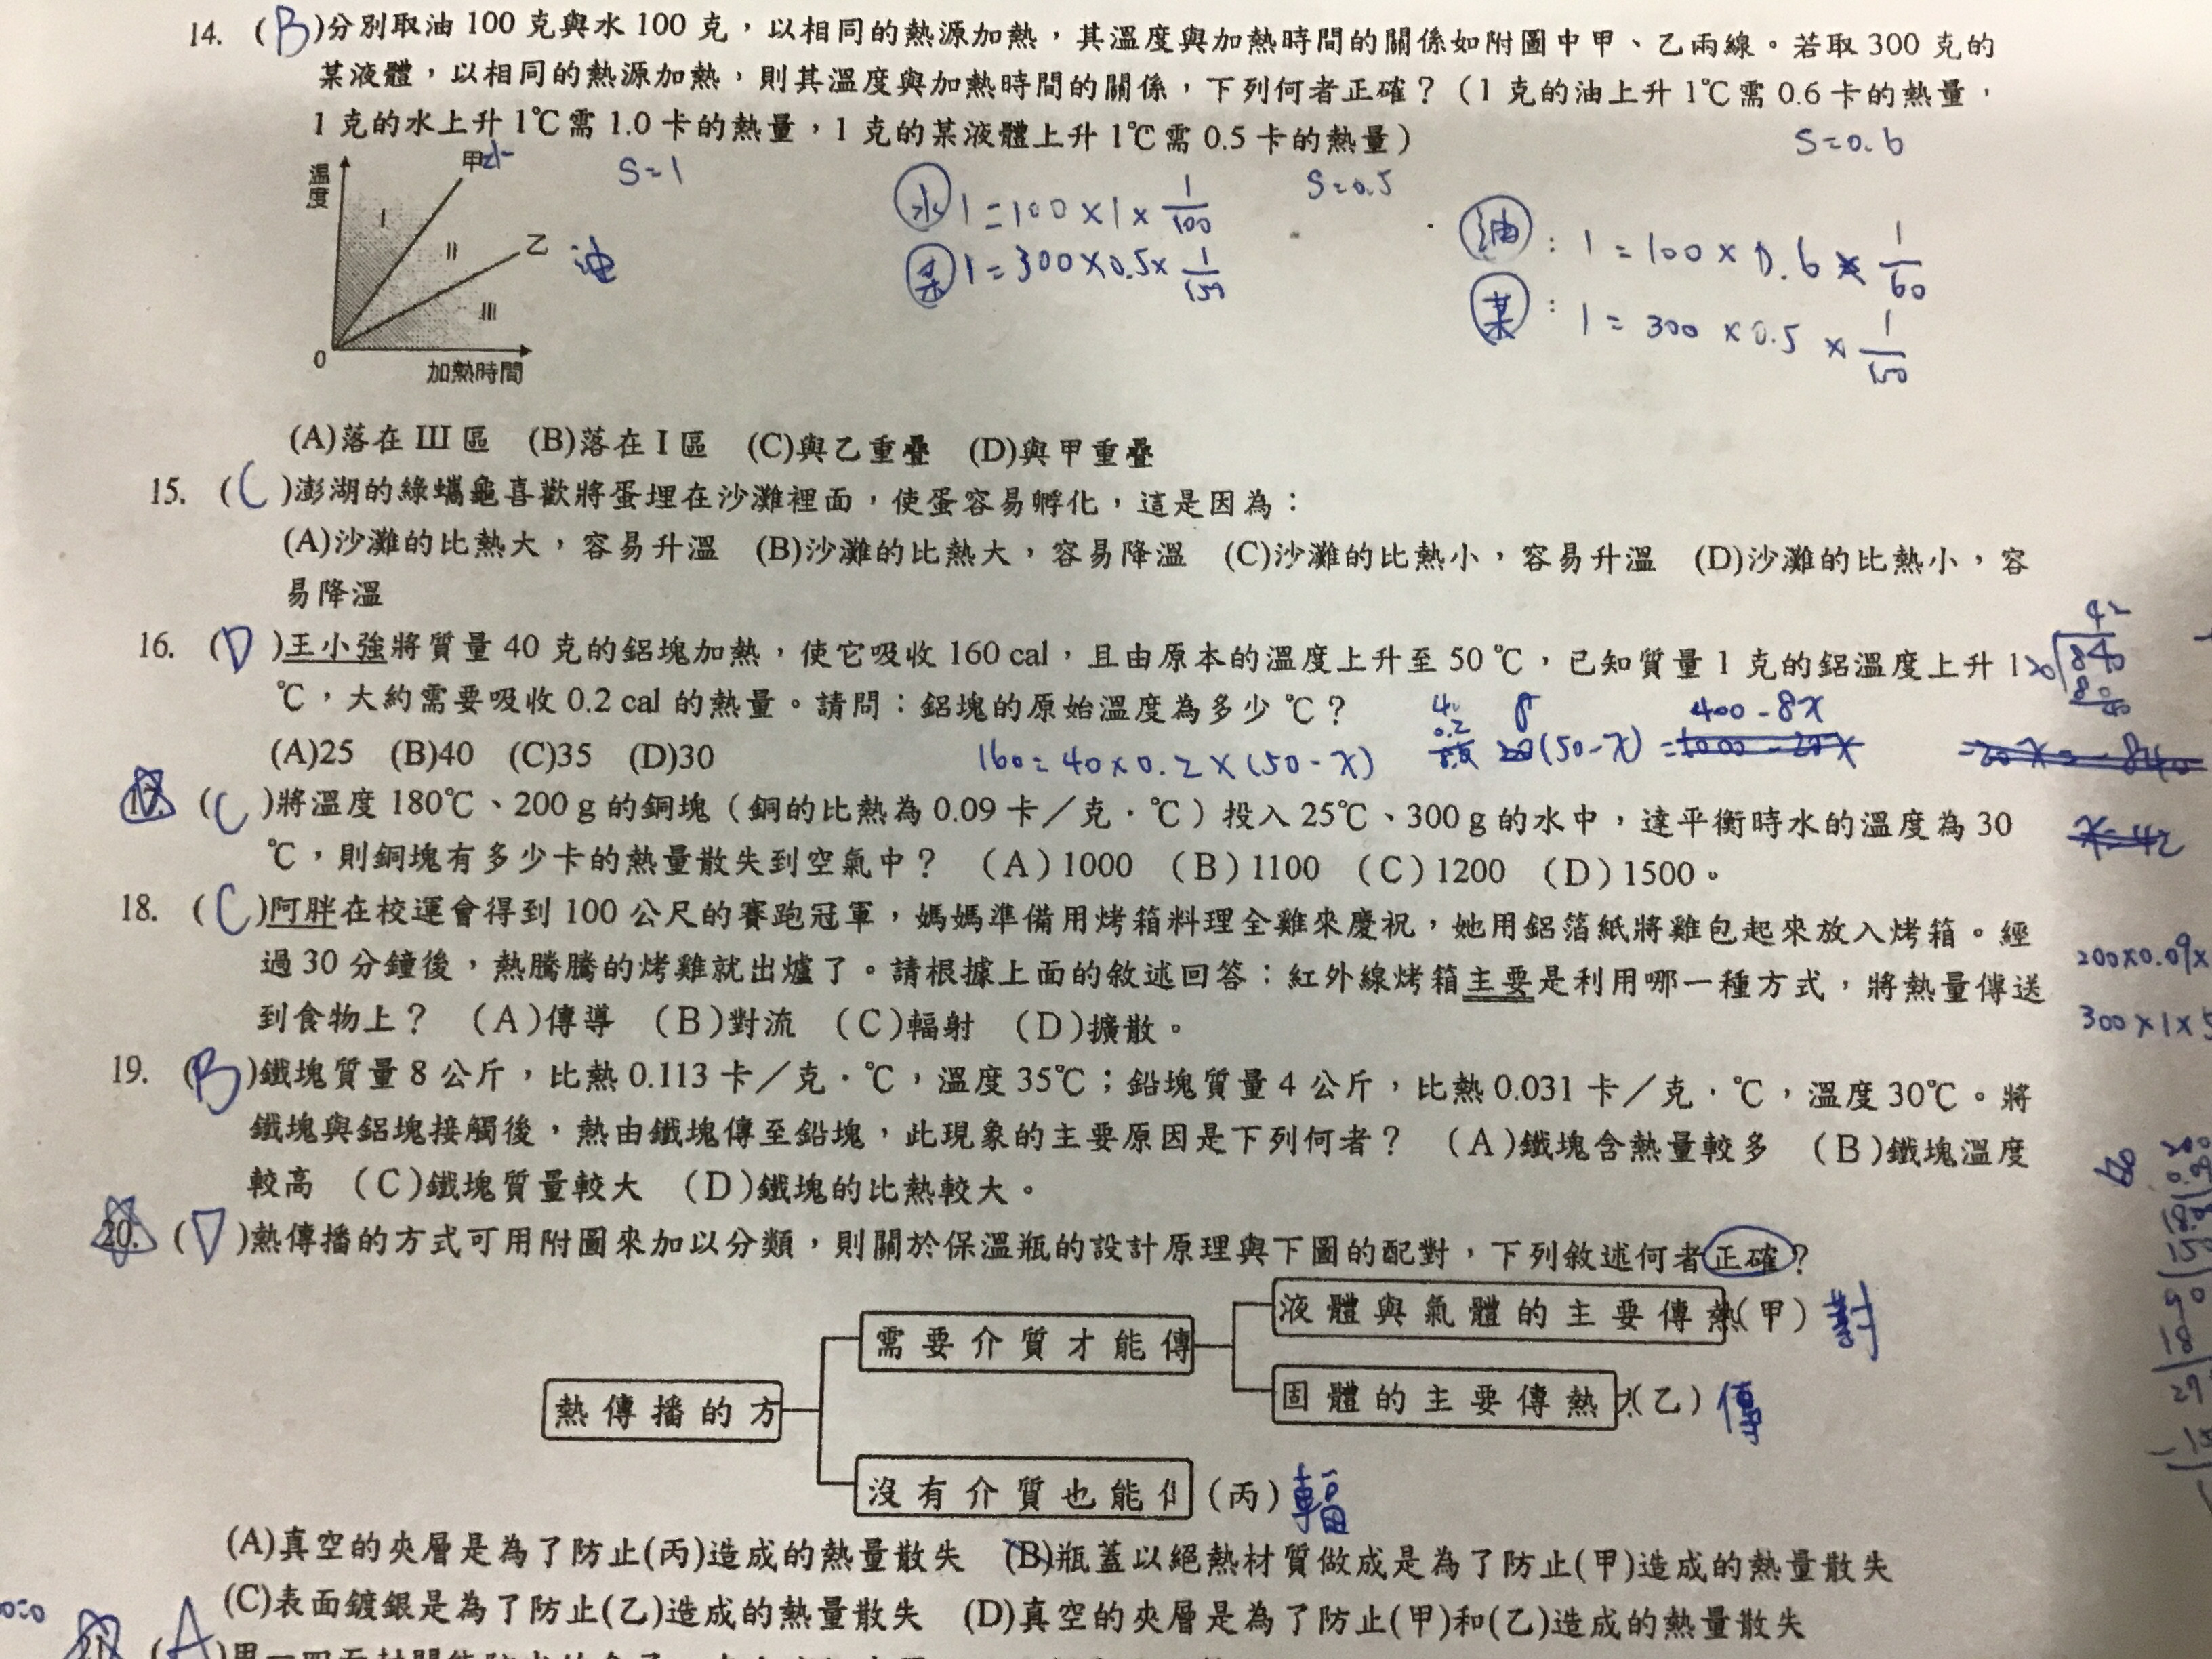 14. (B)分別取油 100 克與水 100 克，以相同的熱源加熱，其溫度與加熱時間的關係如附圖中甲、乙兩線。若取 300 克的
某液體，以相同的熱源加熱，則其溫度與加熱時間的關係，下列何者正確？（1 克的油上升 1℃需 0.6 卡的熱量，
1 克的水上升 1℃需 1.0 卡的熱量，1 克的某液體上升 1℃需 0.5 卡的熱量）
S=0.6
S=1
S=0.5
溫度
甲 水
I
II
乙 油
III
0
加熱時間
水 1=100×1×1/100
某 1=300×0.5×1/150
油：1=100×0.6×1/60
某：1=300×0.5×1/150
(A)落在 III 區 (B)落在 I 區 (C)與乙重疊 (D)與甲重疊
15. (C)澎湖的綠蠵龜喜歡將蛋埋在沙灘裡面，使蛋容易孵化，這是因為：
(A)沙灘的比熱大，容易升溫 (B)沙灘的比熱大，容易降溫 (C)沙灘的比熱小，容易升溫 (D)沙灘的比熱小，容
易降溫
16. (D)王小強將質量 40 克的鋁塊加熱，使它吸收 160 cal，且由原本的溫度上升至 50 ℃，已知質量 1 克的鋁溫度上升 1
℃，大約需要吸收 0.2 cal 的熱量。請問：鋁塊的原始溫度為多少 ℃？
(A)25 (B)40 (C)35 (D)30
160=40×0.2×(50-x)
40
0.2
8(50-x)=400-8x
42
20 840
80
40
x=42
17. (C)將溫度 180℃、200 g 的銅塊（銅的比熱為 0.09 卡／克．℃）投入 25℃、300 g 的水中，達平衡時水的溫度為 30
℃，則銅塊有多少卡的熱量散失到空氣中？ （A）1000 （B）1100 （C）1200 （D）1500。
18. (C)阿胖在校運會得到 100 公尺的賽跑冠軍，媽媽準備用烤箱料理全雞來慶祝，她用鋁箔紙將雞包起來放入烤箱。經
過 30 分鐘後，熱騰騰的烤雞就出爐了。請根據上面的敘述回答：紅外線烤箱主要是利用哪一種方式，將熱量傳送
到食物上？ （A）傳導 （B）對流 （C）輻射 （D）擴散。
200×0.09×
300×1×5
19. (B)鐵塊質量 8 公斤，比熱 0.113 卡／克．℃，溫度 35℃；鉛塊質量 4 公斤，比熱 0.031 卡／克．℃，溫度 30℃。將
鐵塊與鋁塊接觸後，熱由鐵塊傳至鉛塊，此現象的主要原因是下列何者？ （A）鐵塊含熱量較多 （B）鐵塊溫度
較高 （C）鐵塊質量較大 （D）鐵塊的比熱較大。
20. (D)熱傳播的方式可用附圖來加以分類，則關於保溫瓶的設計原理與下圖的配對，下列敘述何者正確？
液體與氣體的主要傳熱(甲) 對
需要介質才能傳
固體的主要傳熱(乙) 傳
熱傳播的方
沒有介質也能(丙) 輻
(A)真空的夾層是為了防止(丙)造成的熱量散失 (B)瓶蓋以絕熱材質做成是為了防止(甲)造成的熱量散失
(C)表面鍍銀是為了防止(乙)造成的熱量散失 (D)真空的夾層是為了防止(甲)和(乙)造成的熱量散失
21. (A)甲